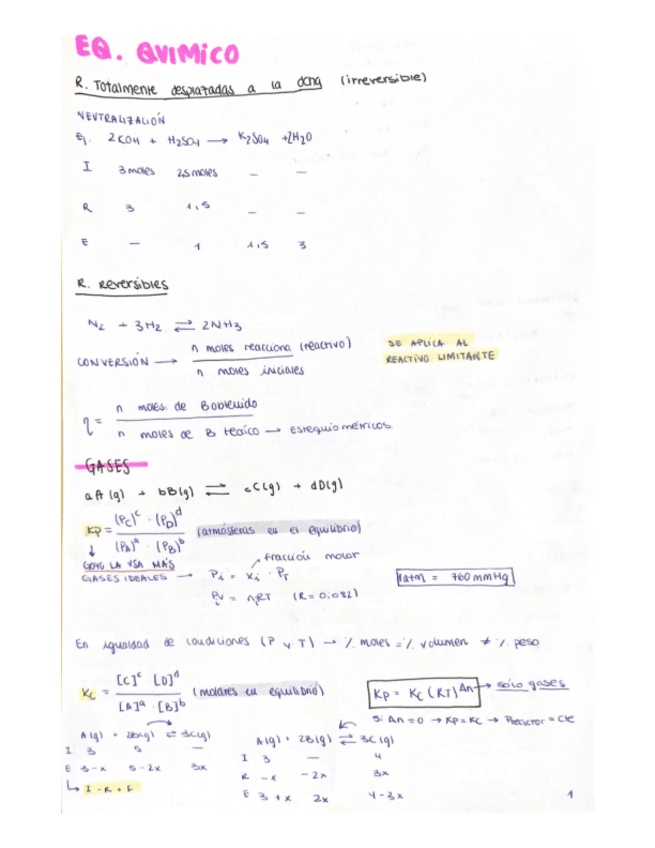 EQ. QUIMICO
R. Totalmente desplazadas a la dcha (irreversible)
NEUTRALIZACIÓN
Ej. 2KOH + H2SO4 → K2SO4 + 2H2O
I 3 moles 2,5 moles — —
R 3 1,5 — —
E — 1 1,5 3
R. Reversibles
N2 + 3H2 ⇄ 2NH3
CONVERSIÓN → n moles reacciona (reactivo) / n moles iniciales
SE APLICA AL
REACTIVO LIMITANTE
η = n moles de B obtenido / n moles de B teorico → estequiométricos
GASES
aA(g) + bB(g) ⇄ cC(g) + dD(g)
Kp = (PC)^c · (PD)^d / (PA)^a · (PB)^b (atmósferas en el equilibrio)
↓
GOYO LA USA MÁS
fracción molar
GASES IDEALES → Pi = xi · PT
1 atm = 760 mmHg
PiV = niRT (R = 0,082)
En igualdad de condiciones (P y T) → % moles = % volumen ≠ % peso
Kc = [C]^c [D]^d / [A]^a · [B]^b (molares en equilibrio)
Kp = Kc (RT)^Δn → sólo gases
Si Δn = 0 → Kp = Kc → Preactor = cte
A(g) + 2B(g) ⇄ 3C(g)
I 3 5 —
E 3-x 5-2x 3x
↳ I - R + F
A(g) + 2B(g) ⇄ 3C(g)
I 3 — 4
R -x -2x 3x
E 3+x 2x 4-3x
1